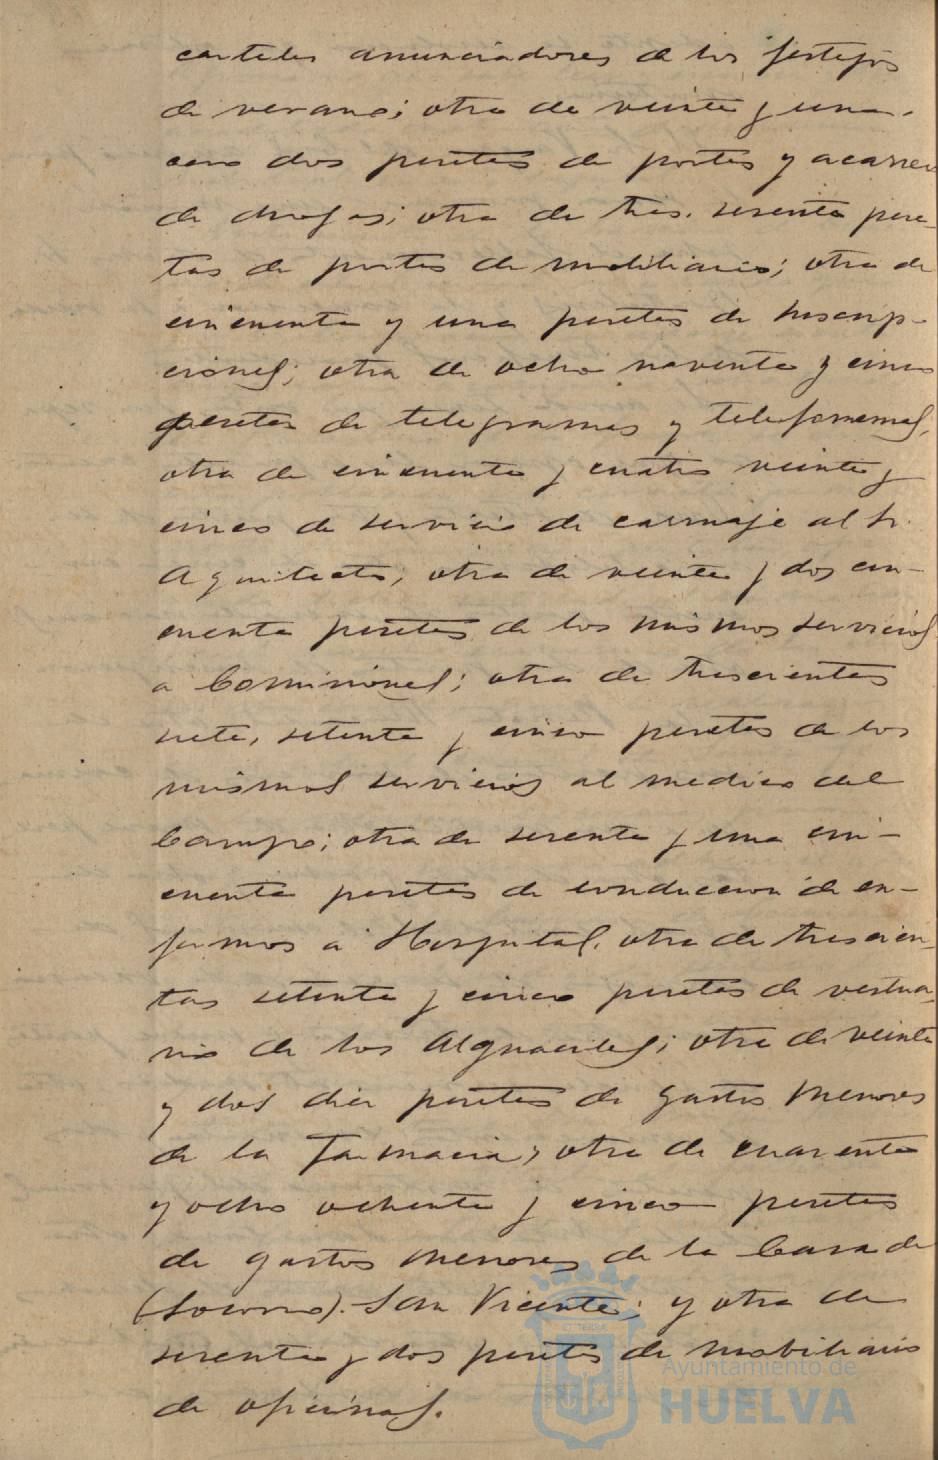 carteles anunciadores de los festejos
de verano; otra de veinte y una,
cero dos pesetas de portes y acarreo
de drogas; otra de tres, sesenta pese-
tas de portes de mobiliario; otra de
cincuenta y una pesetas de suscrip-
ciones; otra de ocho noventa y cinco
pesetas de telegramas y telefonemas,
otra de cincuenta y cuatro veinte y
cinco de servicio de carruaje al Sr.
Arquitecto; otra de veinte y dos cin-
cuenta pesetas de los mismos servicios
a Comisiones; otra de trescientas
siete, setenta y cinco pesetas de los
mismos servicios al medico del
Campo; otra de sesenta y una cin-
cuenta pesetas de conduccion de en-
fermos a Hospital, otra de trescien-
tas setenta y cinco pesetas de vestua-
rio de los Alguaciles; otra de veinte
y dos diez pesetas de gastos menores
de la Farmacia, otra de cuarenta
y ocho ochenta y cinco pesetas
de gastos menores de la Casa de
(Socorro). San Vicente; y otra de
sesenta y dos pesetas de mobiliario
de oficinas.
Ayuntamiento de
HUELVA